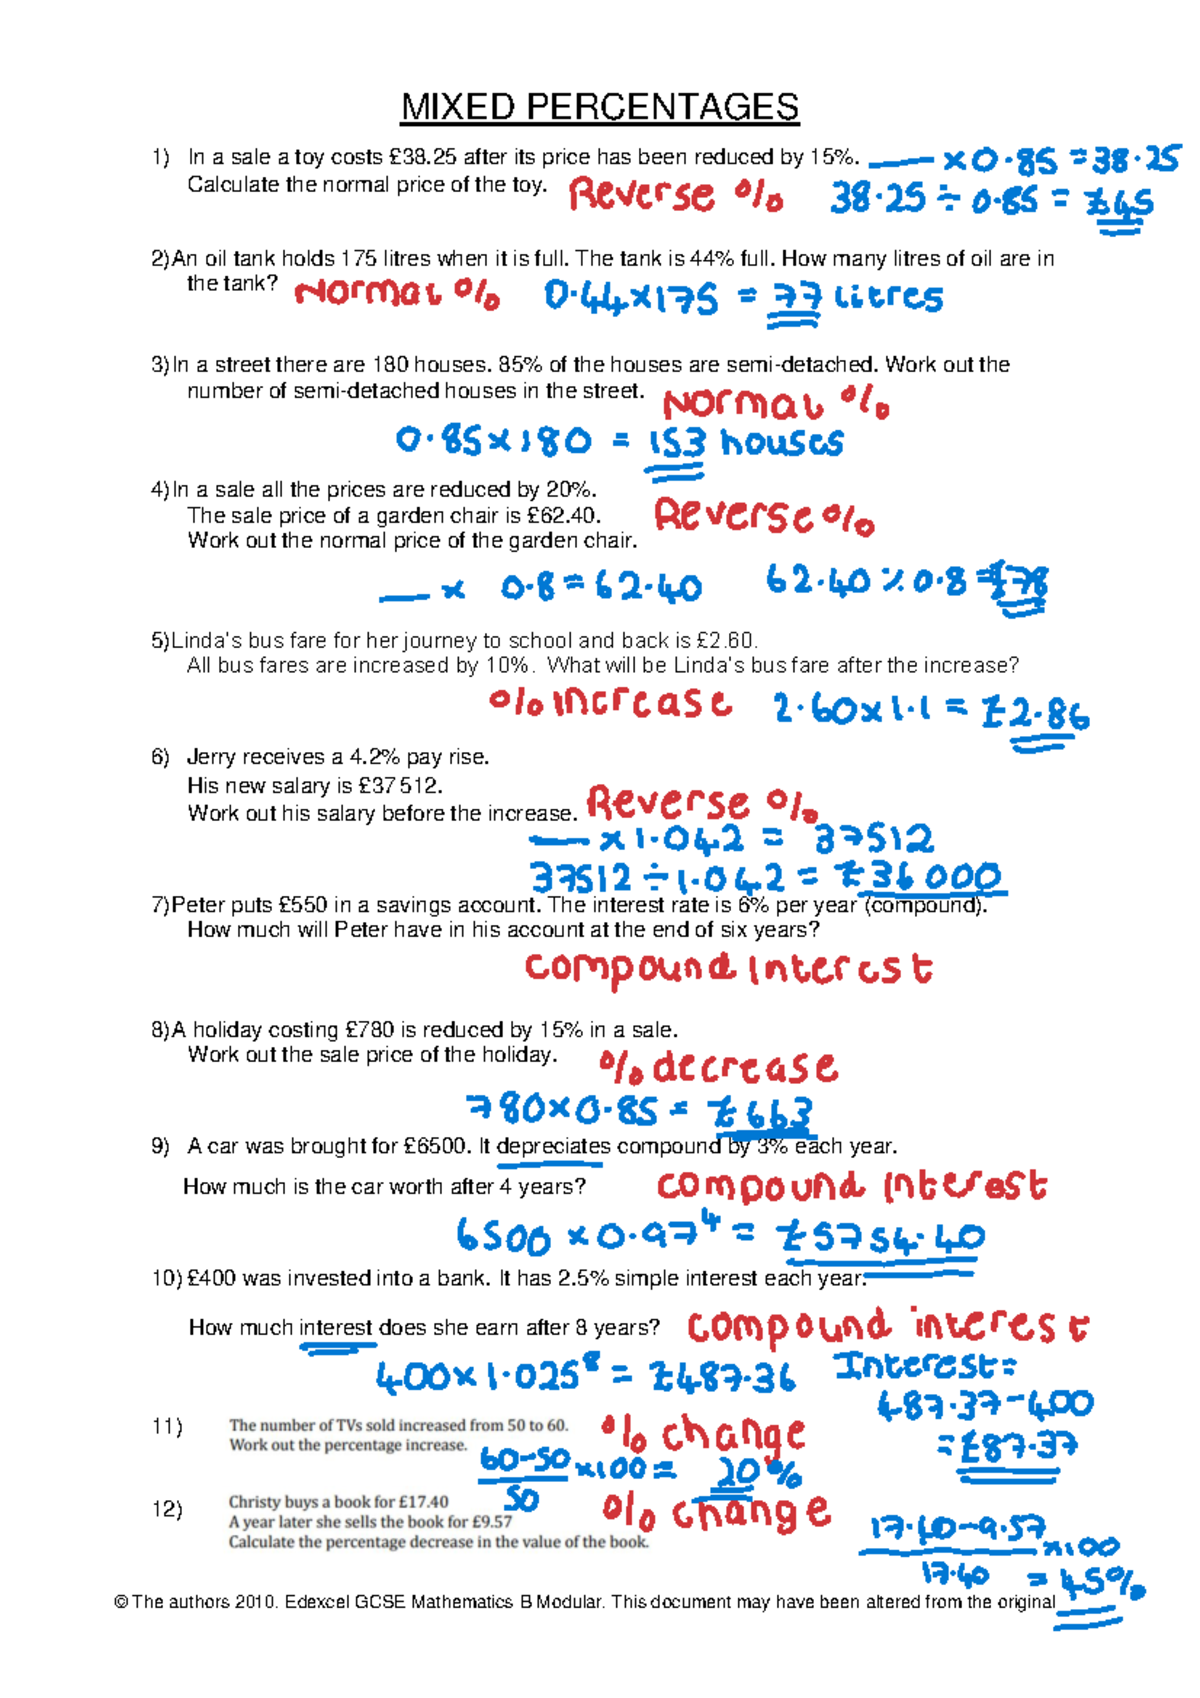 MIXED PERCENTAGES
1) In a sale a toy costs £38.25 after its price has been reduced by 15%. — ×0.85 =38.25
Calculate the normal price of the toy. Reverse % 38.25 ÷ 0.85 = £45
2)An oil tank holds 175 litres when it is full. The tank is 44% full. How many litres of oil are in
the tank? Normal % 0.44×175 = 77 litres
3)In a street there are 180 houses. 85% of the houses are semi-detached. Work out the
number of semi-detached houses in the street. Normal %
0.85×180 = 153 houses
4)In a sale all the prices are reduced by 20%.
The sale price of a garden chair is £62.40. Reverse %
Work out the normal price of the garden chair.
— × 0.8=62.40 62.40 ÷ 0.8=£78
5)Linda's bus fare for her journey to school and back is £2.60.
All bus fares are increased by 10%. What will be Linda's bus fare after the increase?
% increase 2.60×1.1 = £2.86
6) Jerry receives a 4.2% pay rise.
His new salary is £37 512.
Work out his salary before the increase. Reverse %
— ×1.042 = 37512
37512 ÷1.042 = £36 000
7)Peter puts £550 in a savings account. The interest rate is 6% per year (compound).
How much will Peter have in his account at the end of six years?
compound interest
8)A holiday costing £780 is reduced by 15% in a sale.
Work out the sale price of the holiday. % decrease
780×0.85 = £663
9) A car was brought for £6500. It depreciates compound by 3% each year.
How much is the car worth after 4 years? compound interest
6500 ×0.97⁴ = £5754.40
10) £400 was invested into a bank. It has 2.5% simple interest each year.
How much interest does she earn after 8 years? compound interest
400×1.025⁸ = £487.36 Interest=
487.37-400
=£87.37
11) The number of TVs sold increased from 50 to 60. % change
Work out the percentage increase.
60-50 ×100 = 20%
50
12) Christy buys a book for £17.40 % change
A year later she sells the book for £9.57
Calculate the percentage decrease in the value of the book.
17.40-9.57 ×100
17.40 = 45%
© The authors 2010. Edexcel GCSE Mathematics B Modular. This document may have been altered from the original